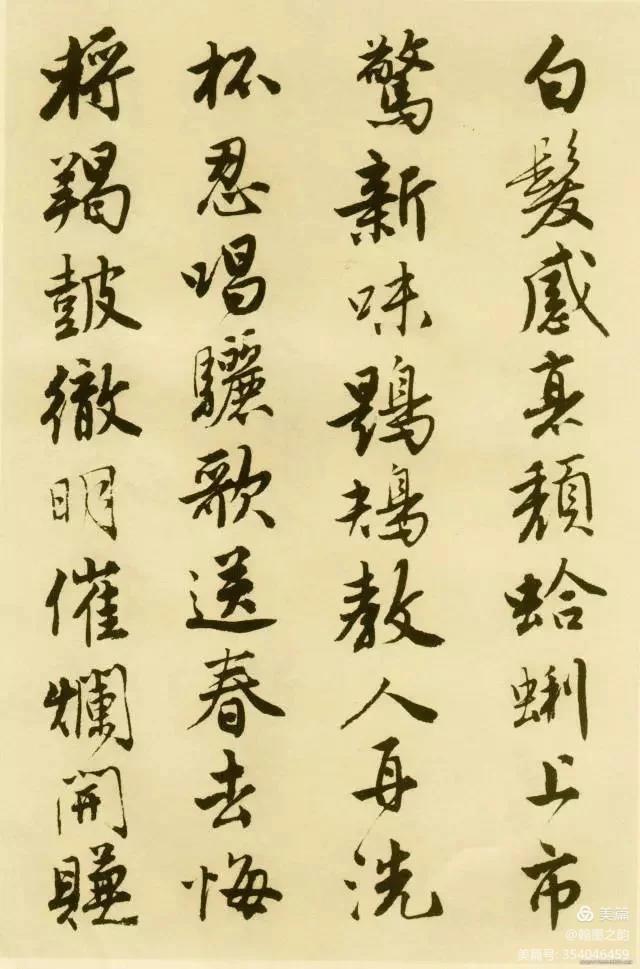 白髮感衰頹蛤蜊上市
驚新味鶗鴂教人再洗
杯忍唱驪歌送春去悔
將羯鼓徹明催爛開賺
美篇
@翰墨之韵
美篇号: 354046459